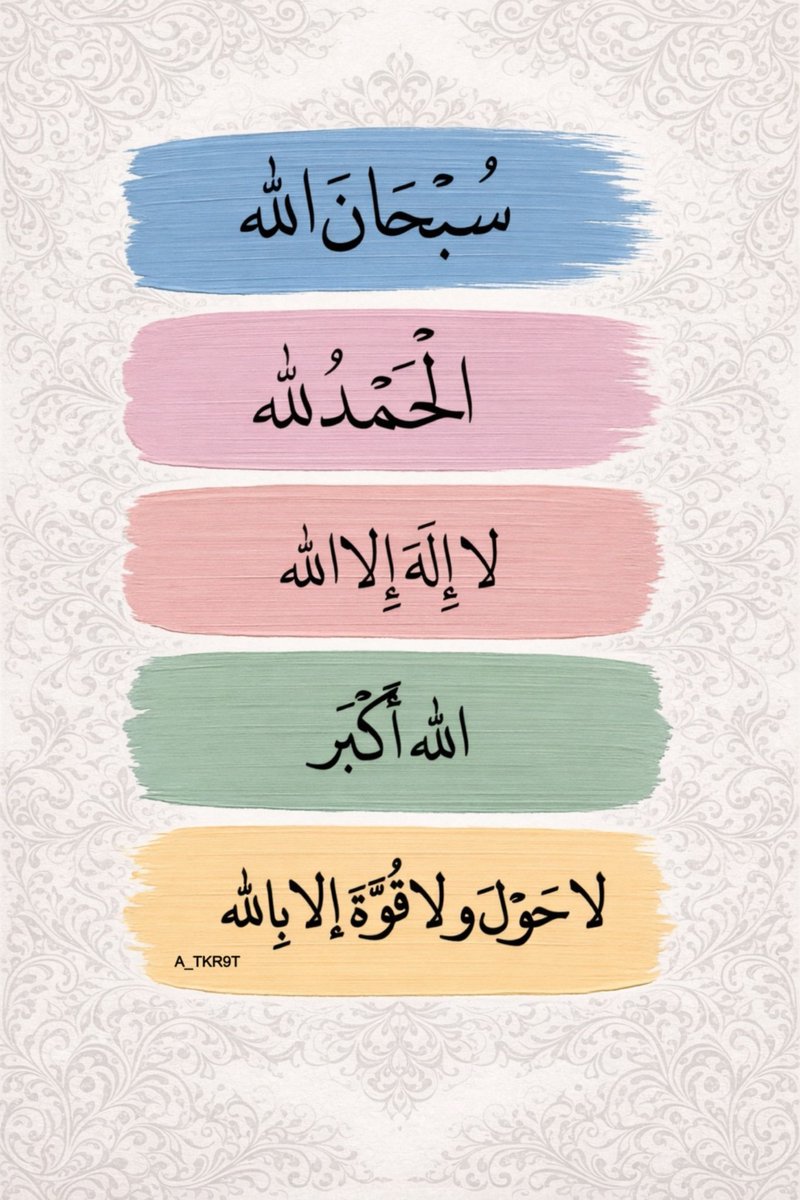 سُبْحَانَ الله
الْحَمْدُ لله
لا إِلَهَ إِلا الله
الله أَكْبَر
لا حَوْلَ ولا قُوَّةَ إلا بِالله
A_TKR9T